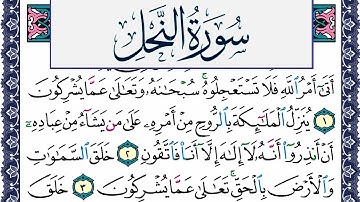 سُورَةُ النَّحْلِ
أَتَىٰٓ أَمْرُ ٱللَّهِ فَلَا تَسْتَعْجِلُوهُ ۚ سُبْحَٰنَهُۥ وَتَعَٰلَىٰ عَمَّا يُشْرِكُونَ
١ يُنَزِّلُ ٱلْمَلَٰٓئِكَةَ بِٱلرُّوحِ مِنْ أَمْرِهِۦ عَلَىٰ مَن يَشَآءُ مِنْ عِبَادِهِۦٓ
أَنْ أَنذِرُوٓا۟ أَنَّهُۥ لَآ إِلَٰهَ إِلَّآ أَنَا۠ فَٱتَّقُونِ ٢ خَلَقَ ٱلسَّمَٰوَٰتِ
وَٱلْأَرْضَ بِٱلْحَقِّ ۚ تَعَٰلَىٰ عَمَّا يُشْرِكُونَ ٣ خَلَقَ